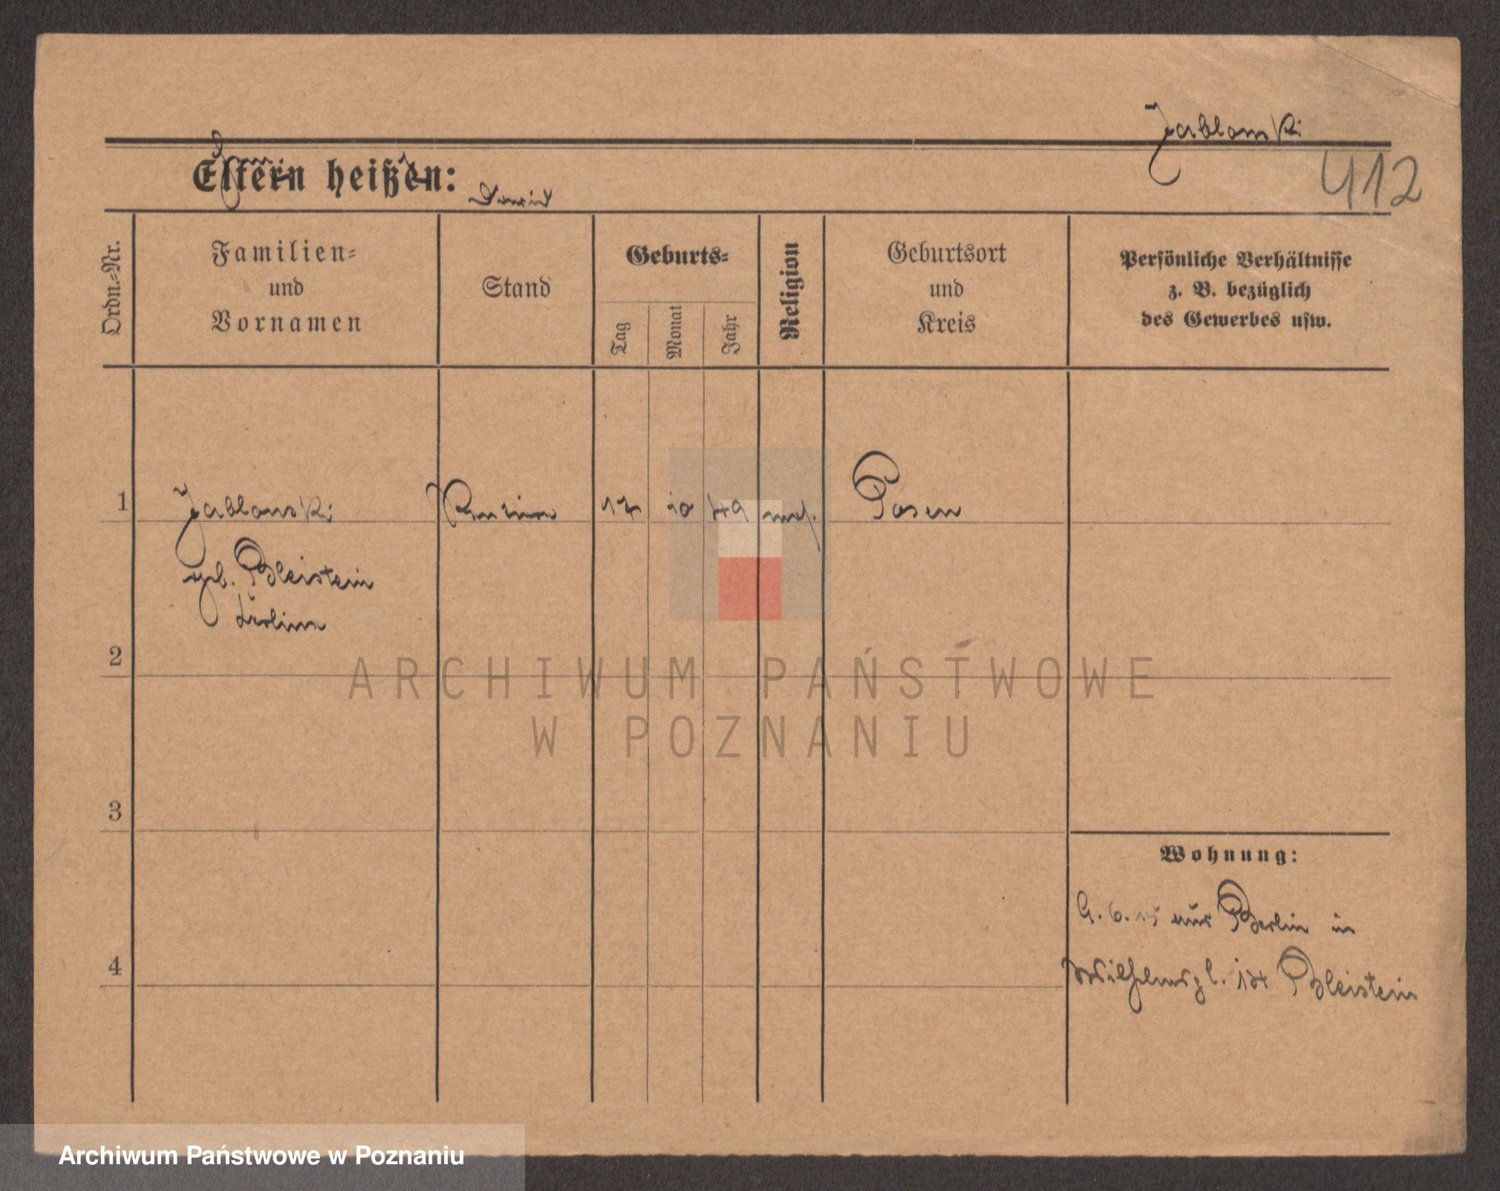 Jablonski
412
Eltern heißen:
David
Ordn.-Nr.
Familien-
und
Vornamen
Stand
Geburts-
Tag
Monat
Jahr
Religion
Geburtsort
und
Kreis
Persönliche Verhältnisse
z. B. bezüglich
des Gewerbes usw.
1
Jablonski
17
10
49
mos.
Posen
geb. Bleistein
2
ARCHIWUM PAŃSTWOWE
W POZNANIU
3
Wohnung:
6. 15 aus Berlin in
4
Wilhelmspl. 14 Bleistein
Archiwum Państwowe w Poznaniu